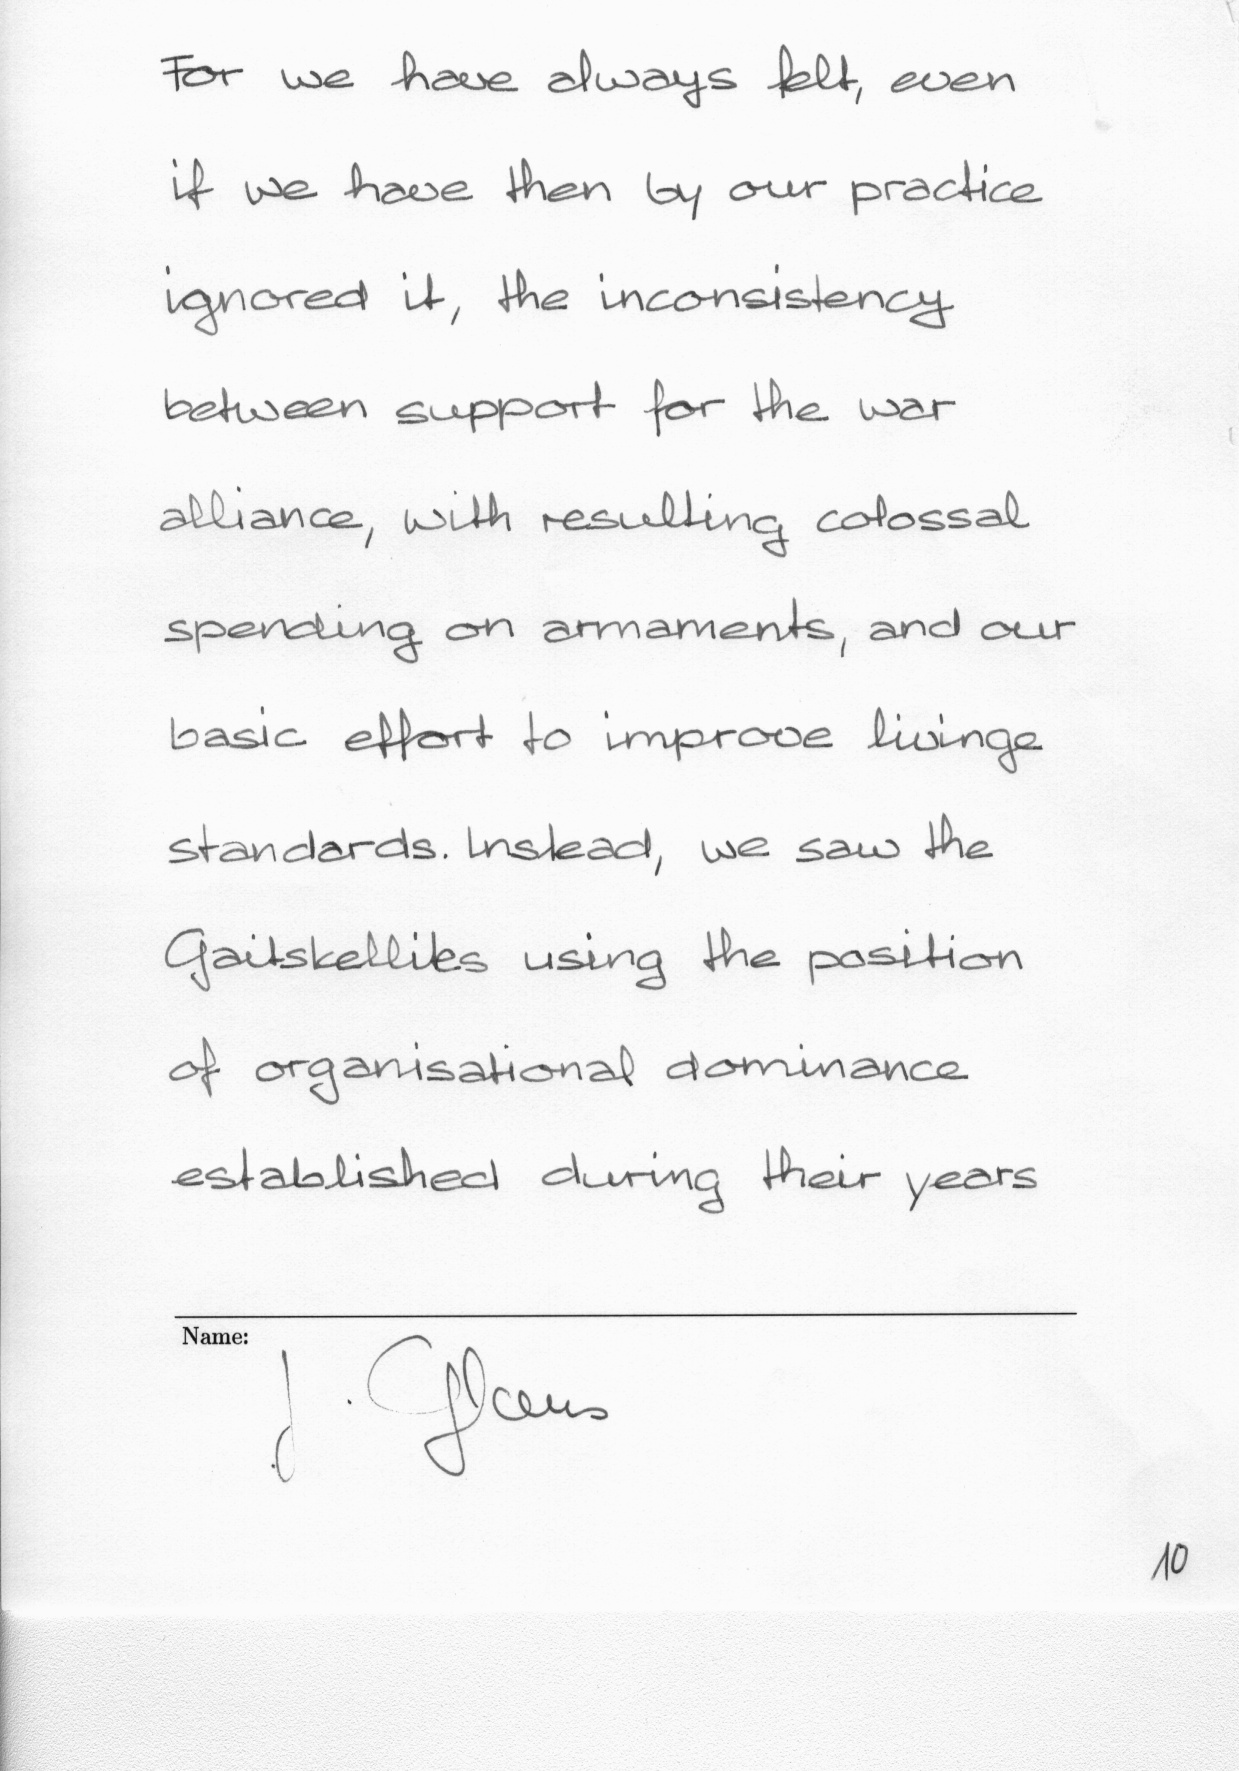 For we have always felt, even
if we have then by our practice
ignored it, the inconsistency
between support for the war
alliance, with resulting colossal
spending on armaments, and our
basic effort to improve livinge
standards. Instead, we saw the
Gaitskellites using the position
of organisational dominance
established during their years
Name:
J.
10